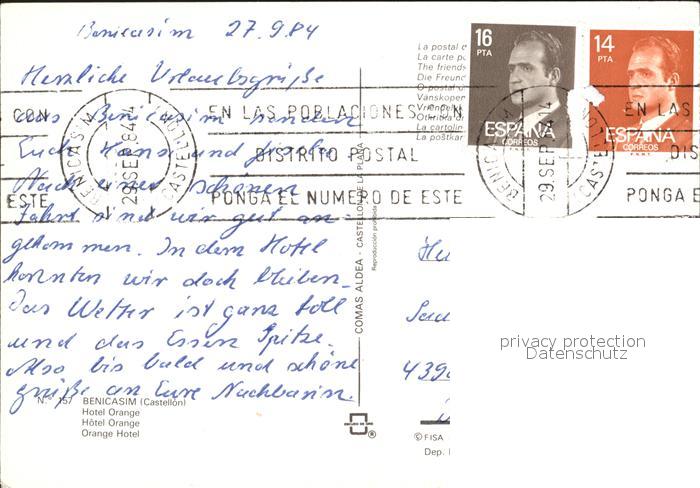 Benicasim 27.9.84
Herzliche Urlaubsgrüße
aus Benicasim senden
Euch Hans und
Nach einer schönen
Fahrt sind wir gut an-
gekommen. In dem Hotel
konnten wir doch bleiben.
Das Wetter ist ganz toll
und das Essen Spitze.
Also bis bald und schöne
grüße an Eure Nachbarin.
Nº 157 BENICASIM (Castellón)
Hotel Orange
Hôtel Orange
Orange Hotel
COMAS ALDEA - CASTELLO DE LA PLANA
Reproducción prohibida
La postal e
La carte po
The friends
Die Freund
O postal
Vanskoper
La cartolin
La postkar
16
PTA
ESPAÑA
CORREOS
F.N.M.T.
14
PTA
ESPAÑA
CORREOS
F.N.M.T.
CON
ESTE
BENICASIM
29.SEP.84
CASTELLON
EN LAS POBLACIONES CON
DISTRITO POSTAL
PONGA EL NUMERO DE ESTE
BENICASIM
29.SEP.84
CASTELLON
EN LAS
DIS
PONGA E
439
privacy protection
Datenschutz
®
© FISA
Dep.